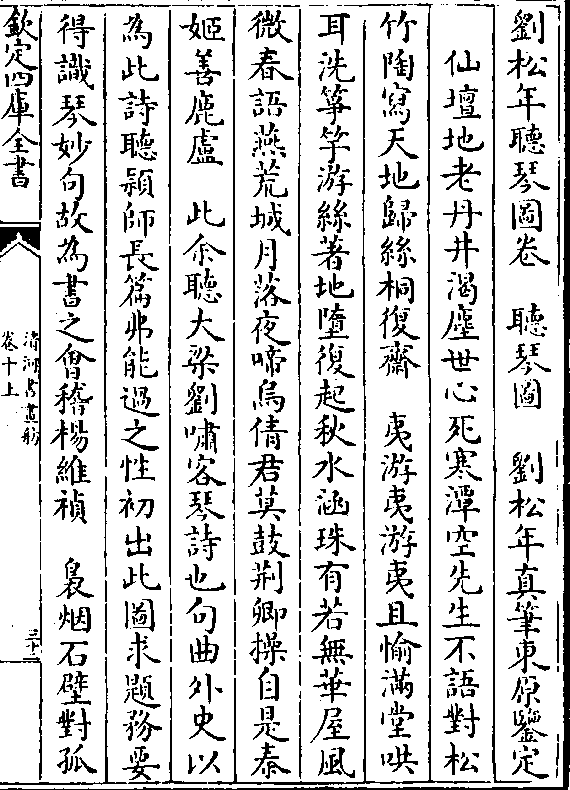 劉松年聽琴圖卷　聽琴圖　劉松年真筆東原鑒定
仙壇地老丹井渴塵世心死寒潭空先生不語對松
竹陶寫天地歸絲桐復齋　夷游夷游夷且愉滿堂哄
耳洗箏竽游絲著地墮復起秋水涵珠有若無華屋風
微春語燕荒城月落夜啼烏倩君莫鼓荆卿操自是秦
姬善鹿盧　此余聽大梁劉嘯客琴詩也句曲外史以
為此詩聽頴師長篇弗能過之性初出此圖求題務要
得識琴妙句故為書之會稽楊維禎　裊烟石壁對孤
欽定四庫全書
清河書畫舫
卷十上
三十二